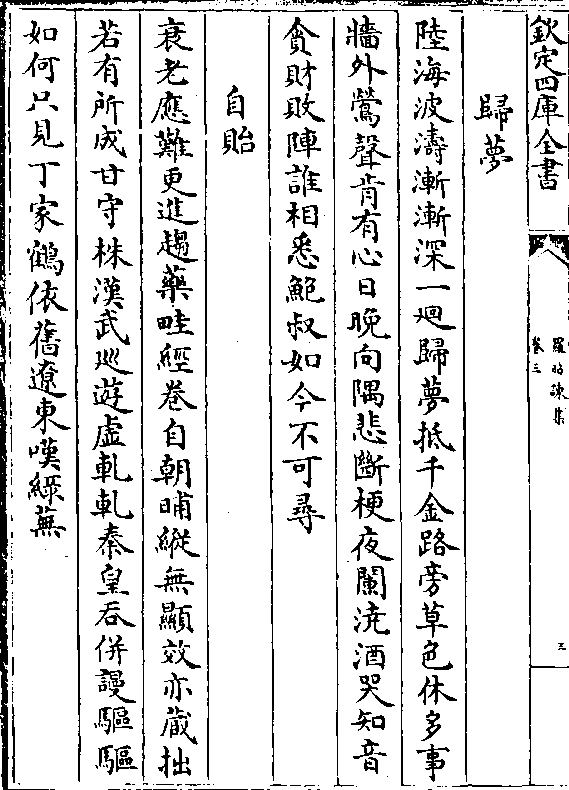 欽定四庫全書
羅昭諫集
卷三
三
歸夢
陸海波濤漸漸深一廻歸夢抵千金路旁草色休多事
牆外鶯聲肯有心日晚向隅悲斷梗夜闌澆酒哭知音
貪財敗陣誰相悉鮑叔如今不可尋
自貽
衰老應難更進趨藥畦經卷自朝晡縱無顯效亦藏拙
若有所成甘守株漢武巡遊虛軋軋秦皇吞併謾驅驅
如何只見丁家鶴依舊遼東嘆綠蕪